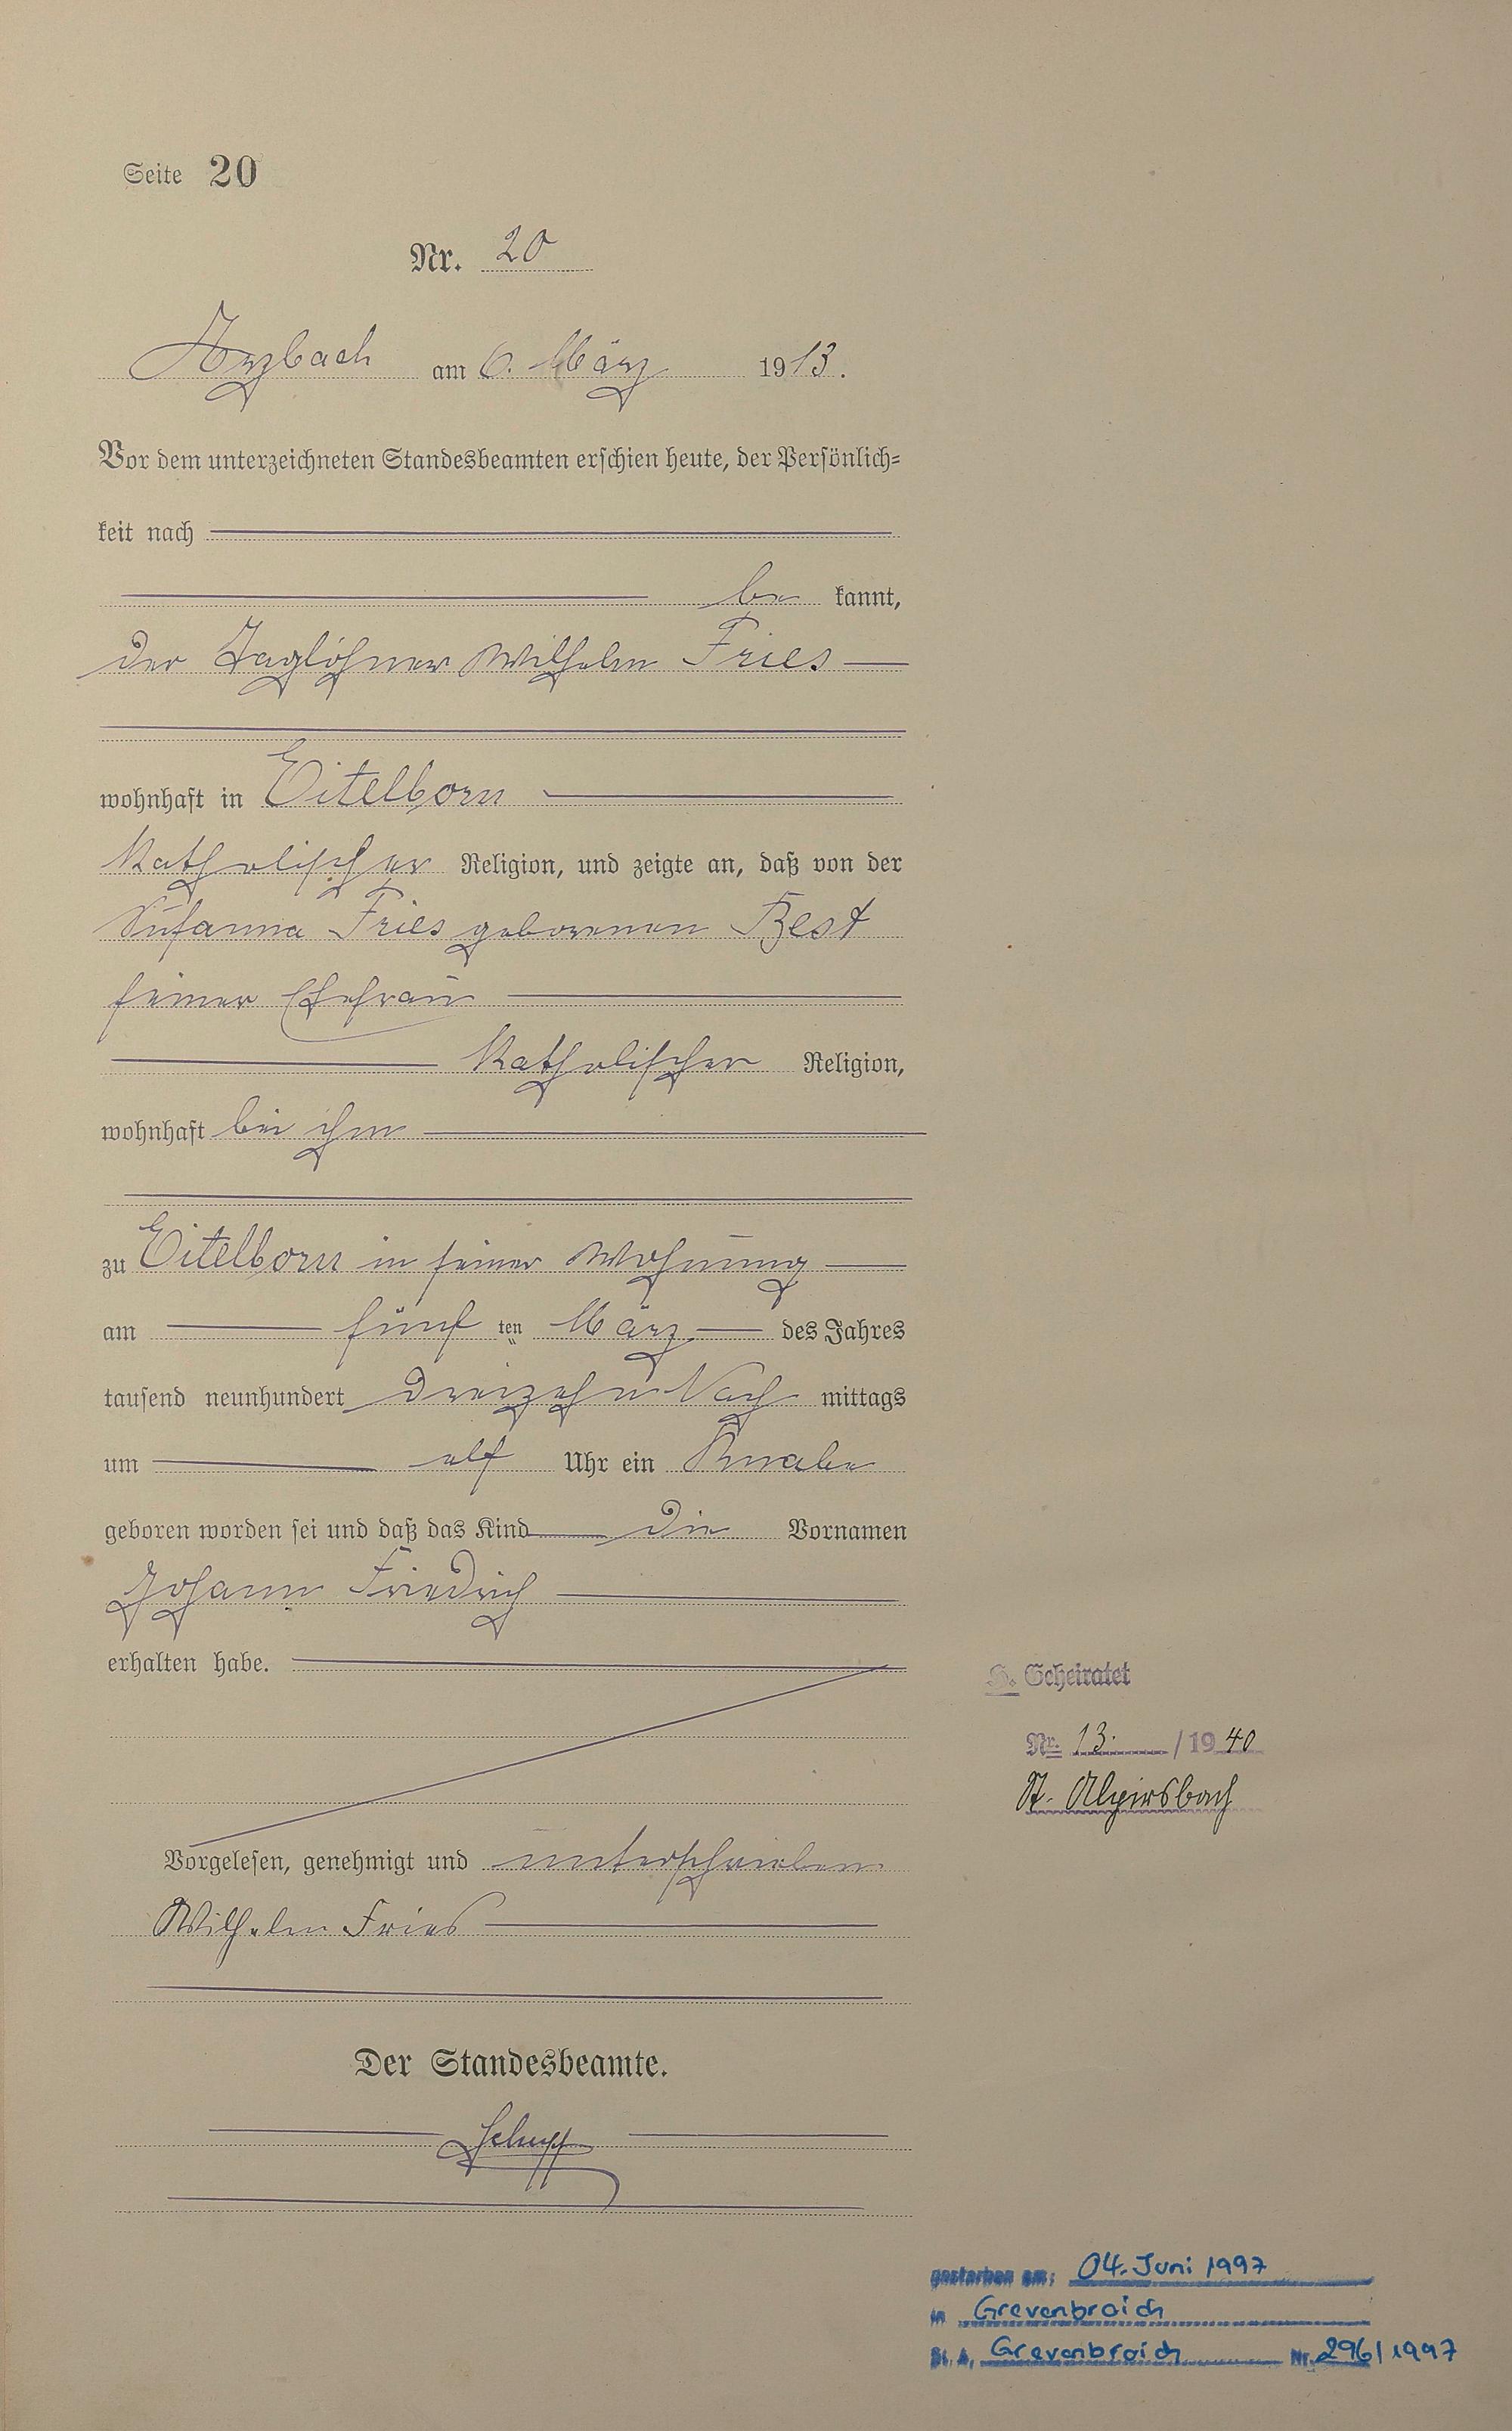 Seite 20
Nr. 20
Arzbach am 6. März 1913.
Vor dem unterzeichneten Standesbeamten erschien heute, der Persönlich=
keit nach
be kannt,
der Taglöhner Wilhelm Fries
wohnhaft in Eitelborn
katholischer Religion, und zeigte an, daß von der
Susanna Fries geborenen Best
seiner Ehefrau
katholischer Religion,
wohnhaft bei ihm
zu Eitelborn in seiner Wohnung
am fünf ten März des Jahres
tausend neunhundert dreizehn Nach mittags
um elf Uhr ein Knabe
geboren worden sei und daß das Kind die Vornamen
Johann Friedrich
erhalten habe.
H. Geheiratet
Nr. 13. / 1940
St. Alpirsbach
Vorgelesen, genehmigt und unterschrieben
Wilhelm Fries
Der Standesbeamte.
Schupp
gestorben am: 04. Juni 1997
in Grevenbroich
St. A. Grevenbroich Nr. 296/1997